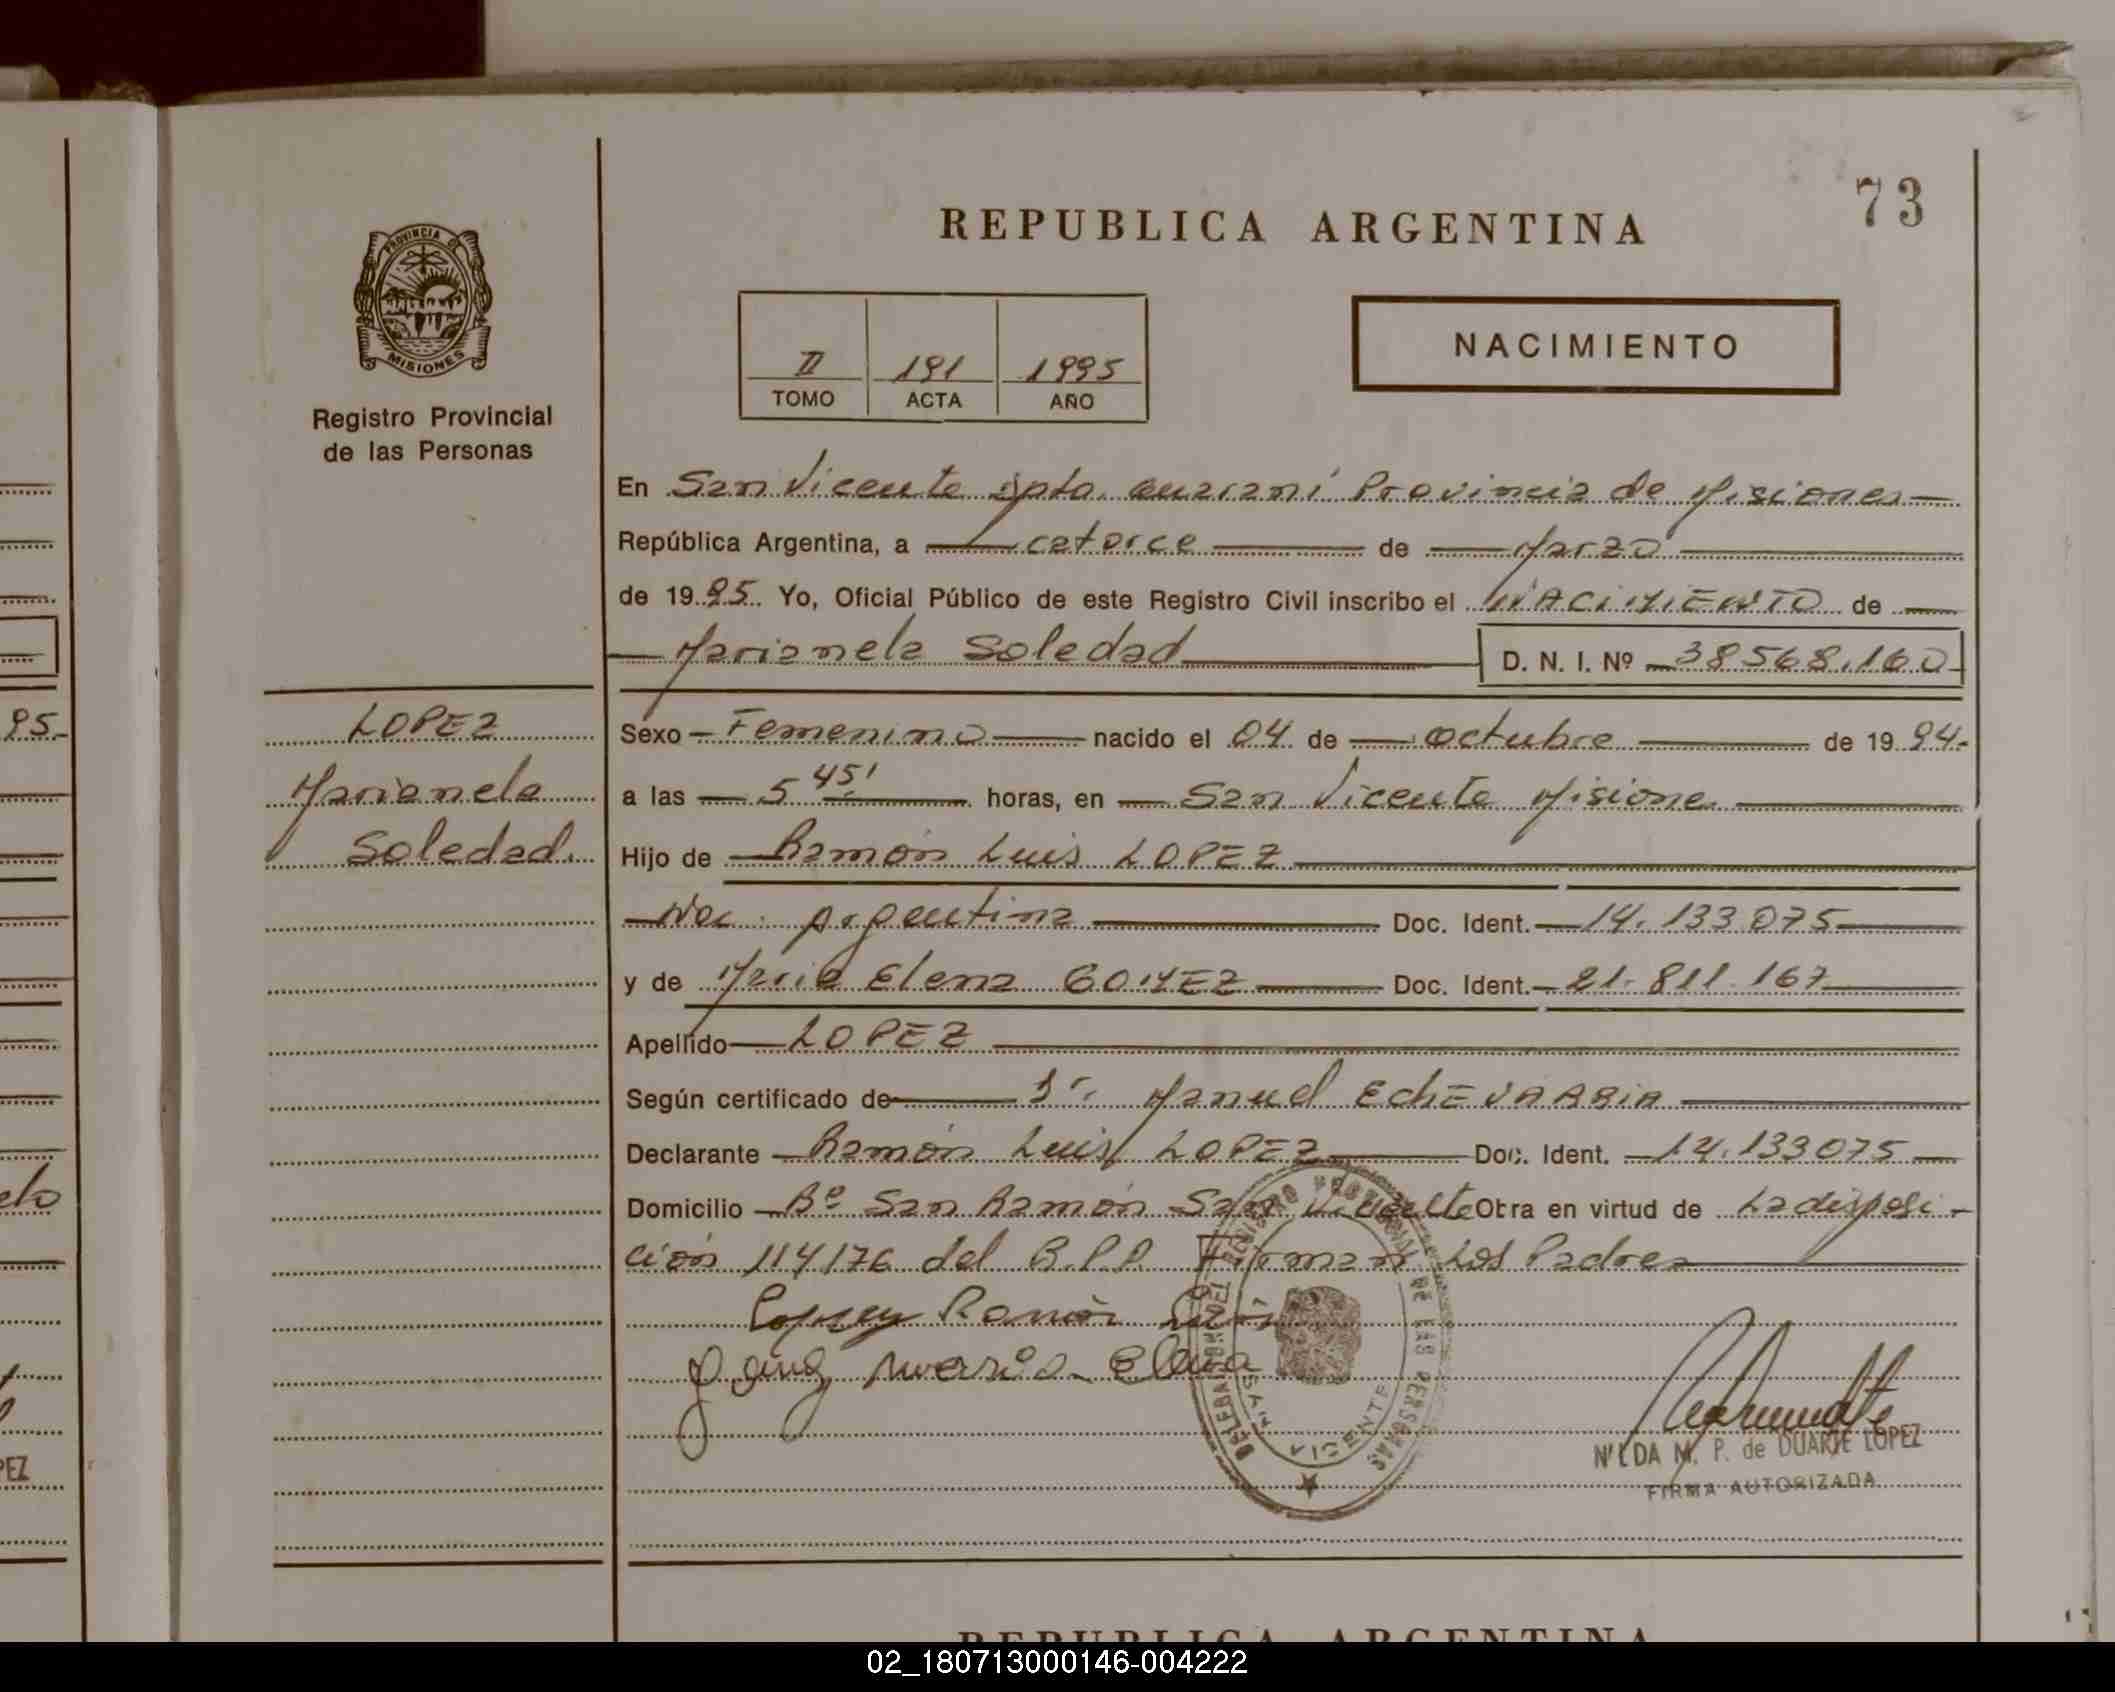 73
REPUBLICA ARGENTINA
PROVINCIA DE
MISIONES
Registro Provincial
de las Personas
II 191 1995
TOMO ACTA AÑO
NACIMIENTO
En San Vicente Dpto. Guaraní Provincia de Misiones
República Argentina, a catorce de Marzo
de 1995. Yo, Oficial Público de este Registro Civil inscribo el NACIMIENTO de
Marianela Soledad D. N. I. Nº 38568.160
LOPEZ
Marianela
Soledad.
Sexo Femenino nacido el 04 de octubre de 1994.
a las 5 45' horas, en San Vicente Misiones
Hijo de Ramón Luis LOPEZ
Nac. Argentina Doc. Ident. 14.133.075
y de Maria Elena GOMEZ Doc. Ident. 21.811.167
Apellido LOPEZ
Según certificado de Manuel EchEVARRIA
Declarante Ramón Luis LOPEZ Doc. Ident. 14.133075
Domicilio Bº San Ramón San Vicente Obra en virtud de La disposi-
ción 114/76 del R.P.P. Firman Los Padres
Lopez Ramón Luis
Elena
DELEGACION DEL REGISTRO PROVINCIAL DE LAS PERSONAS
SAN VICENTE
NILDA M. P. de DUARTE LOPEZ
FIRMA AUTORIZADA
REPUBLICA ARGENTINA
95.
PEZ
02_180713000146-004222